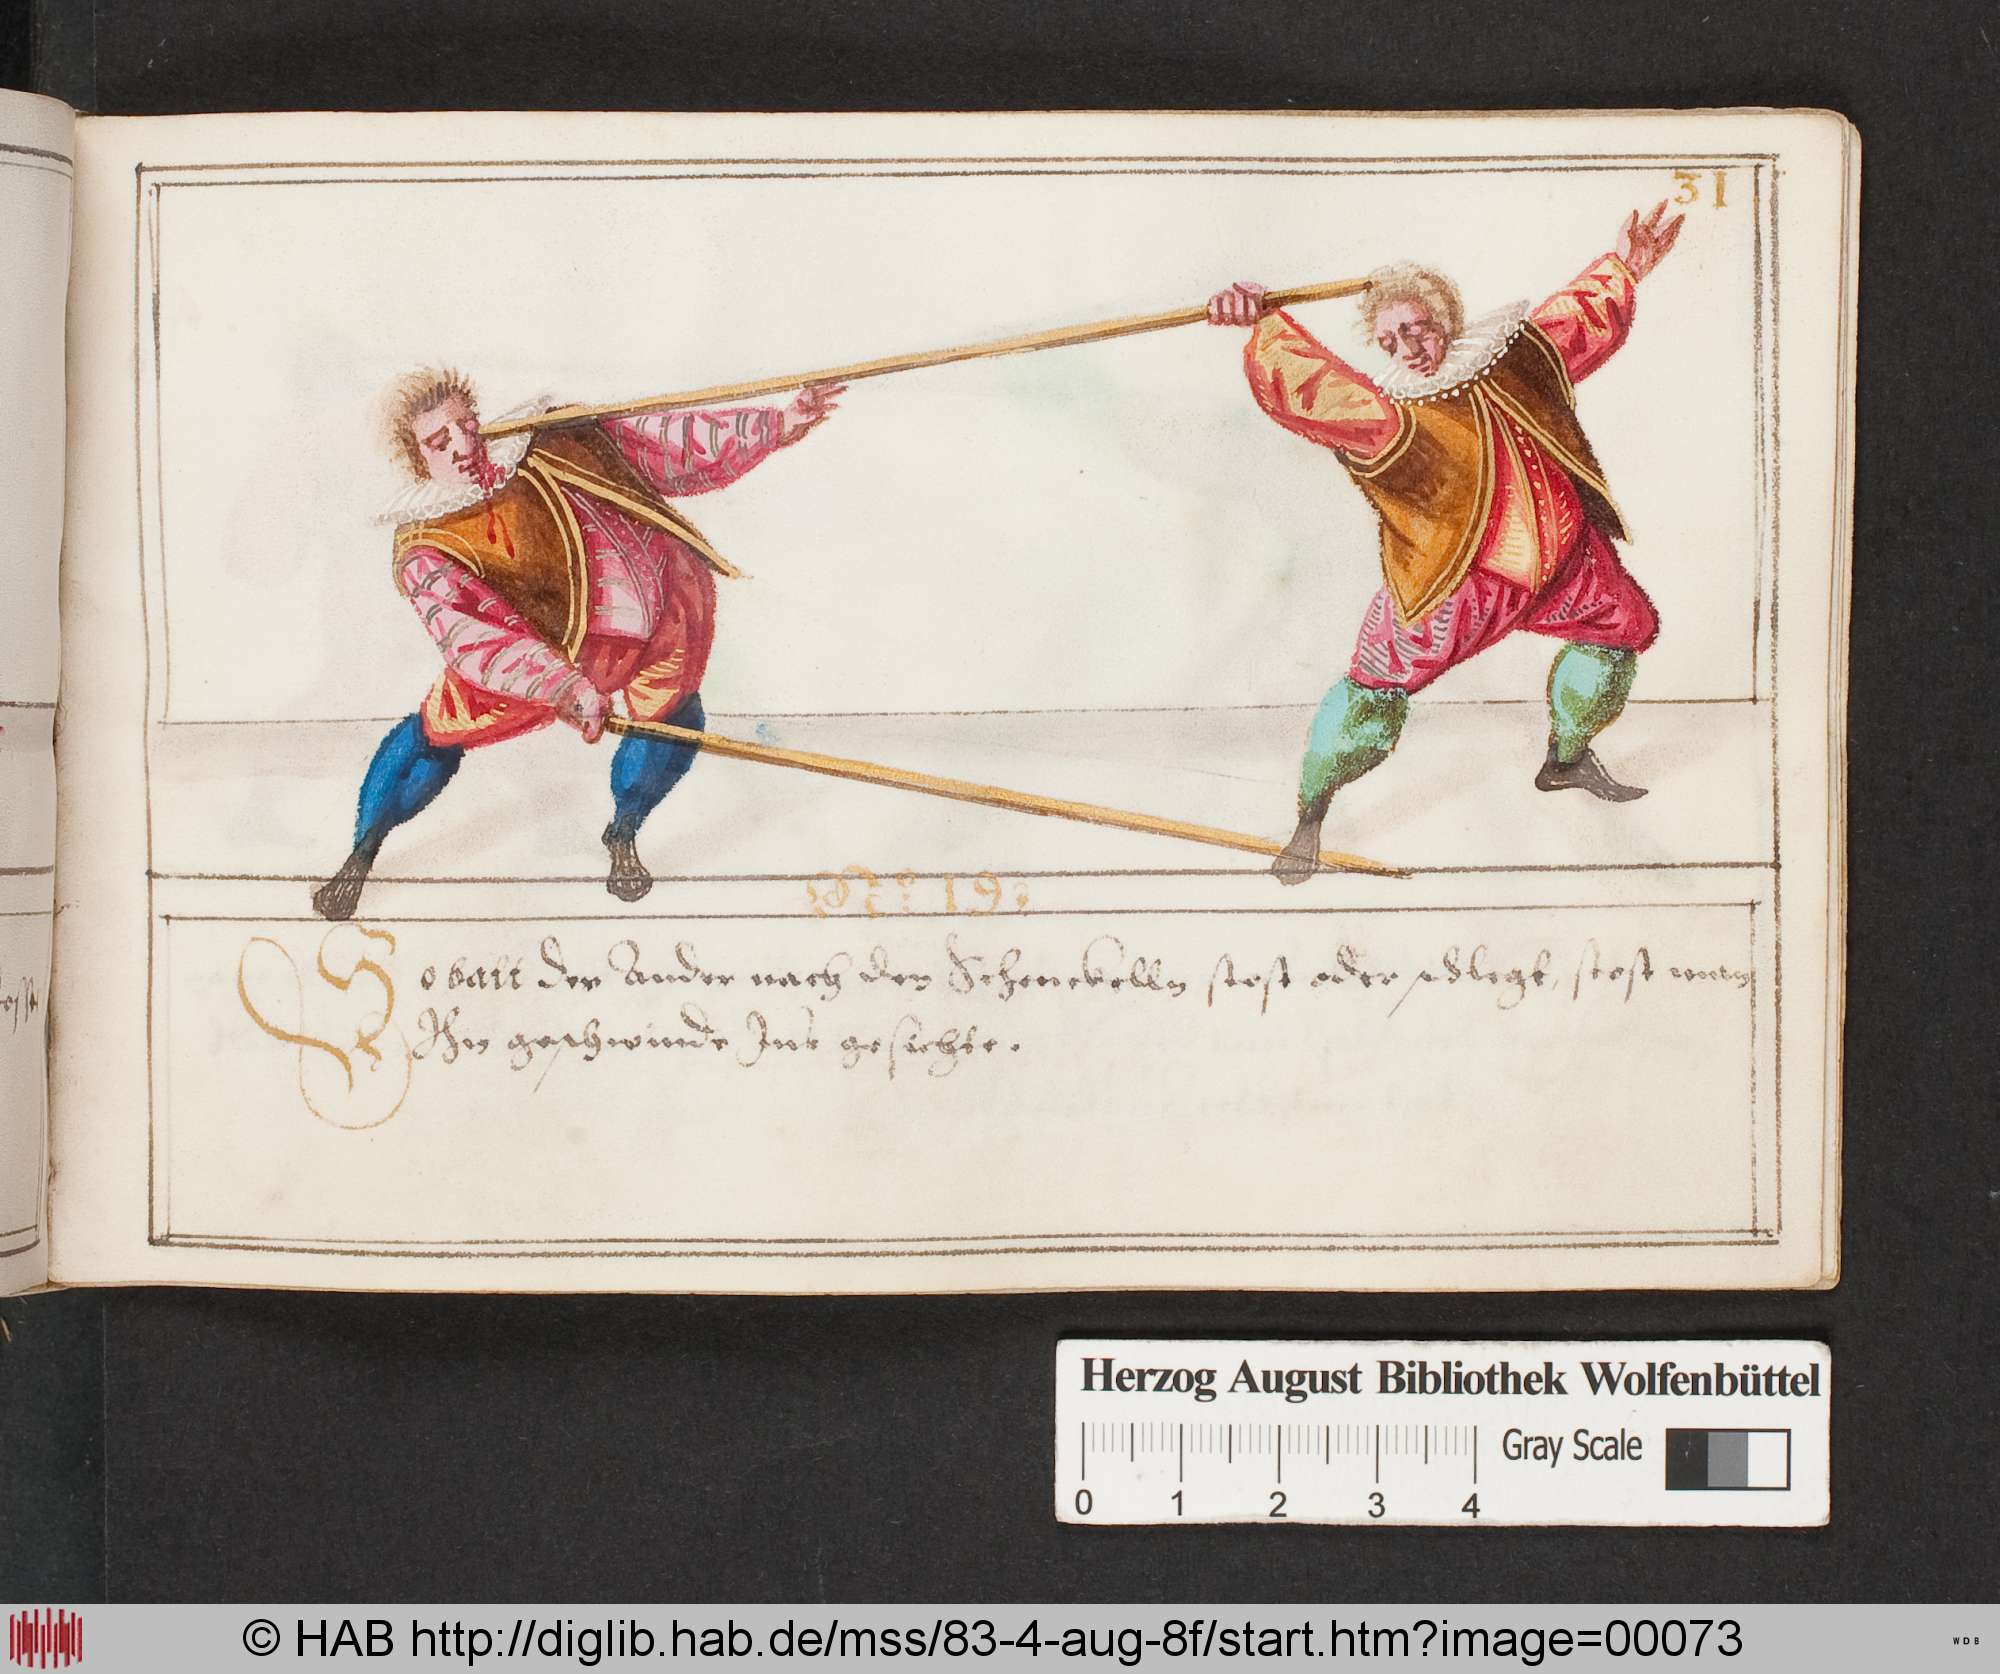 31
Nr: 19:
So balt der Ander nach den Schenckelln stost oder schlegt, stost man
Ihn geschwinde Ins gesichte.
Herzog August Bibliothek Wolfenbüttel
Gray Scale
0 1 2 3 4
© HAB http://diglib.hab.de/mss/83-4-aug-8f/start.htm?image=00073
WDB